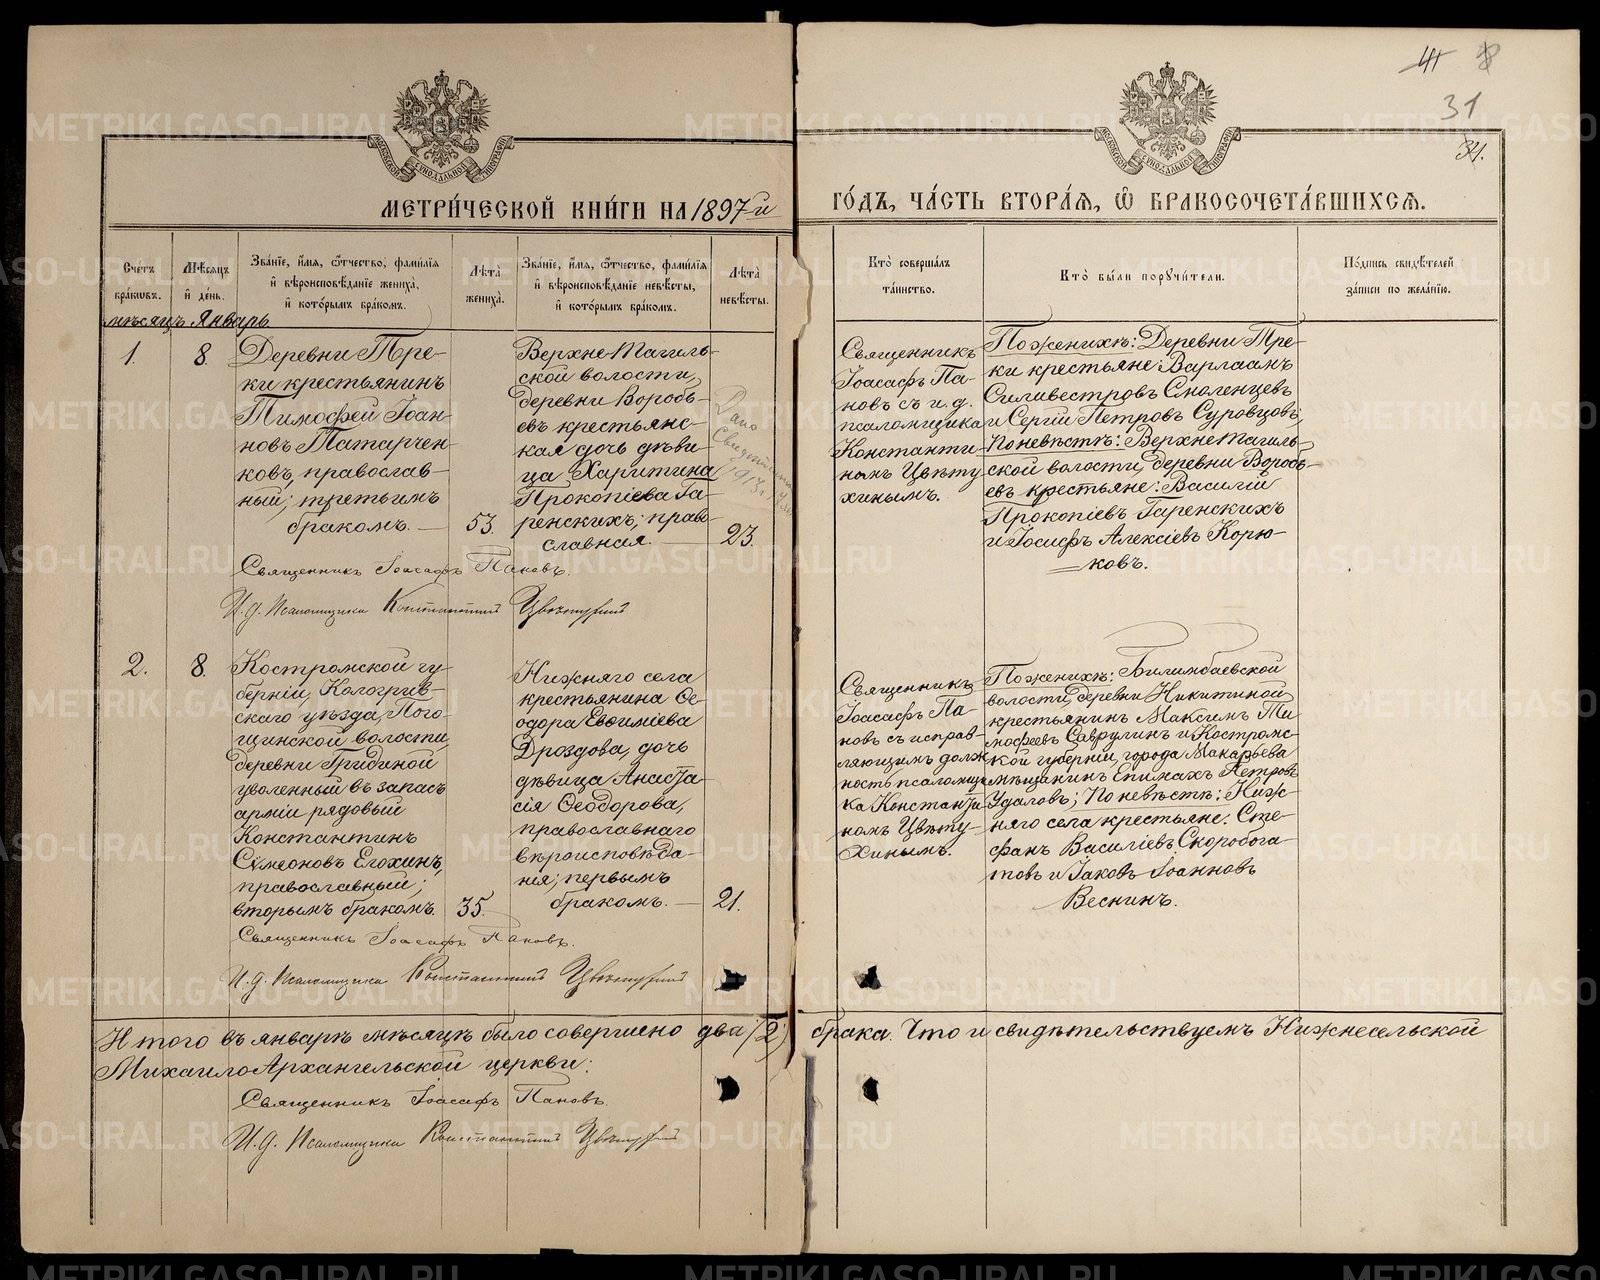 4 8
31
31.
МОСКОВСКОЙ СѶНОДАЛЬНОЙ ТИПОГРАФІИ
МОСКОВСКОЙ СѶНОДАЛЬНОЙ ТИПОГРАФІИ
МЕТРИ́ЧЕСКОЙ КНИ́ГИ НА 1897й
ГО́ДЪ, ЧА́СТЬ ВТОРА́Я, Ѽ БРАКОСОЧЕТА́ВШИХСЯ.
Сче́тъ бра́ковъ.
Мѣ́сяцъ и҆ де́нь.
Зва́нїе, и҆́мя, ѻ҆́тчество, фами́лїя и҆ вѣроисповѣ́данїе жениха̀, и҆ кото́рымъ бра́комъ.
Лѣ́та жениха̀.
Зва́нїе, и҆́мя, ѻ҆́тчество, фами́лїя и҆ вѣроисповѣ́данїе невѣ́сты, и҆ кото́рымъ бра́комъ.
Лѣ́та невѣ́сты.
Кто̀ соверша́лъ та́инство.
Кто̀ бы́ли порꙋчи́тели.
По́дпись свидѣ́телей за́писи по жела́нїю.
мѣсяцъ Январь
1.
8.
Деревни Тре-
ки крестьянинъ
Тимофей Іоан-
новъ Татарчен-
ковъ, православ-
ный; третьимъ
бракомъ. —
53.
Верхне-Тагиль-
ской волости,
деревни Воробь-
евъ крестьянс-
кая дочь дѣви-
ца Харитина
Прокопіева Га-
ренскихъ; право-
славная. —
23.
Дано
1913 г.
Священникъ
Іоасафъ Па-
новъ съ и. д.
псаломщика
Константи-
номъ Цвѣту-
хинымъ.
По женихѣ: Деревни Тре-
ки крестьяне: Варлаамъ
Силивестровъ Смоленцевъ
и Сергій Петровъ Суровцовъ;
По невѣстѣ: Верхне-Тагиль-
ской волости, деревни Воробь-
евъ крестьяне: Василій
Прокопіевъ Гаренскихъ
и Іосифъ Алексіевъ Корю-
ковъ.
Священникъ Іоасафъ Пановъ.
И. д. Псаломщика Константинъ Цвѣтухинъ
2.
8.
Костромской гу-
берніи, Кологрив-
скаго уѣзда, Пого-
щинской волости,
деревни Гридиной
уволенный въ запасъ
арміи рядовый
Константинъ
Сѵмеоновъ Егохинъ,
православный;
вторымъ бракомъ.
35.
Нижняго села
крестьянина Ѳе-
одора Евѳиміева
Дроздова, дочь
дѣвица Анаста-
сія Ѳеодорова,
православнаго
вѣроисповѣда-
нія; первымъ
бракомъ. —
21.
Священникъ
Іоасафъ Па-
новъ съ исправ-
ляющимъ долж-
ность псаломщи-
ка Константи-
номъ Цвѣту-
хинымъ.
По женихѣ: Билимбаевской
волости, деревни Никитиной
крестьянинъ Максимъ Ти-
мофеевъ Саврулинъ и Костромс-
кой губерніи, города Макарьева
мѣщанинъ Епимахъ Петровъ
Удаловъ; По невѣстѣ: Ниж-
няго села крестьяне: Сте-
фанъ Василіевъ Скоробога-
товъ и Іаковъ Іоанновъ
Веснинъ.
Священникъ Іоасафъ Пановъ.
И. д. Псаломщика Константинъ Цвѣтухинъ
Итого въ январѣ мѣсяцѣ было совершено два (2) брака. Что и свидѣтельствуемъ Нижнесельской
Михаило-Архангельской церкви:
Священникъ Іоасафъ Пановъ.
И. д. Псаломщика Константинъ Цвѣтухинъ
METRIKI.GASO-URAL.RU